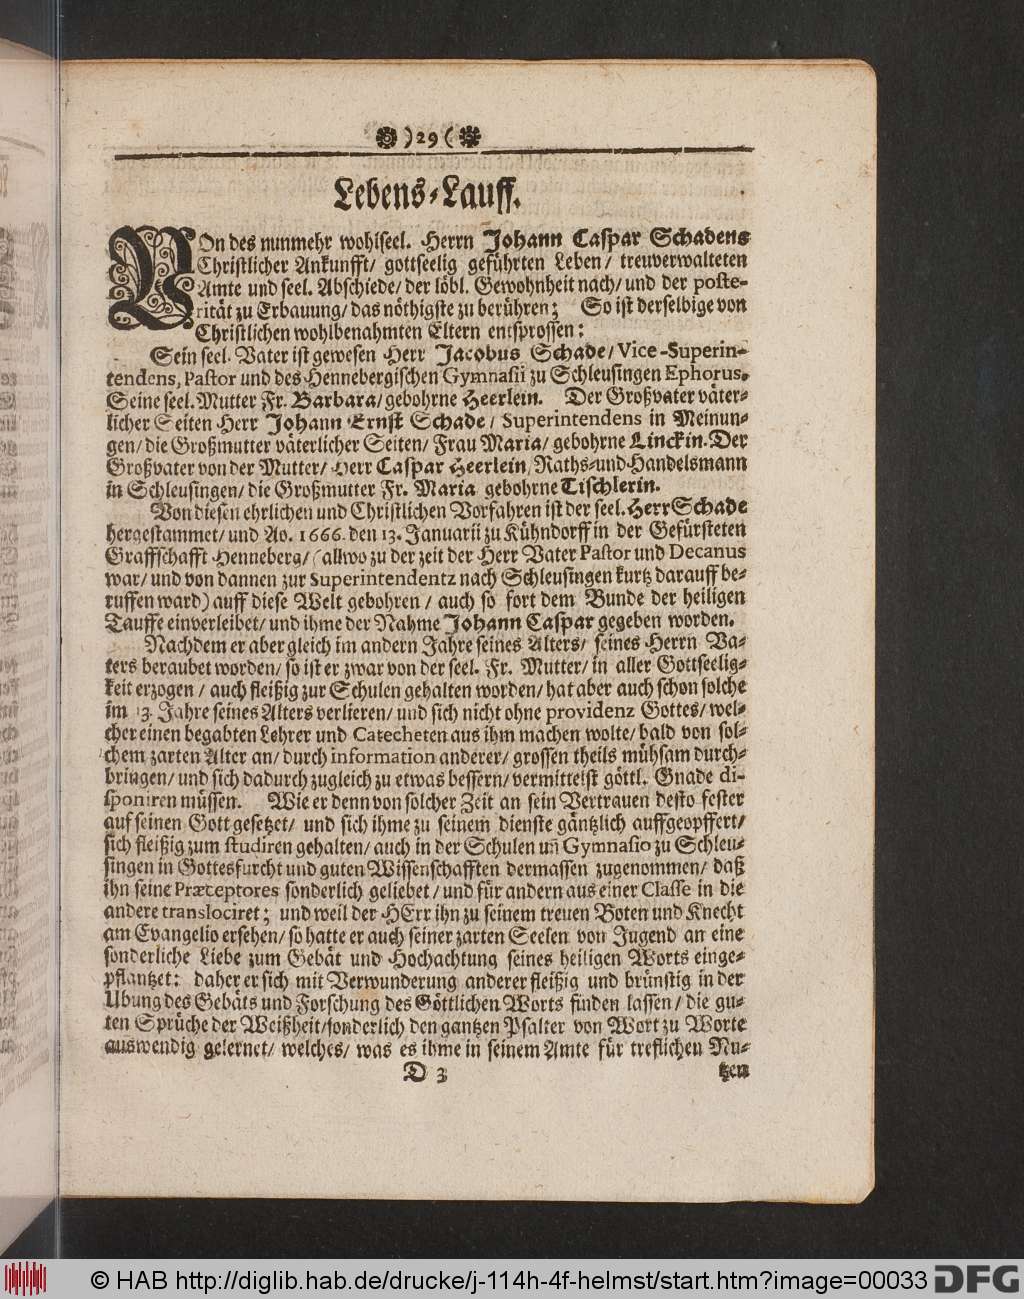 )29(
Lebens-Lauff.
VOn des nunmehr wohlseel. Herrn Johann Caspar Schadens
Christlicher Ankunfft/ gottseelig geführten Leben/ treuverwalteten
Amte und seel. Abschiede/ der löbl. Gewohnheit nach/ und der poste-
rität zu Erbauung/ das nöthigste zu berühren; So ist derselbige von
Christlichen wohlbenahmten Eltern entsprossen:
Sein seel. Vater ist gewesen Herr Jacobus Schade/ Vice-Superin-
tendens, Pastor und des Hennebergischen Gymnasii zu Schleusingen Ephorus.
Seine seel. Mutter Fr. Barbara/ gebohrne Heerlein. Der Großvater väter-
licher Seiten Herr Johann Ernst Schade/ Superintendens in Meinun-
gen/ die Großmutter väterlicher Seiten/ Frau Maria/ gebohrne Linckin. Der
Großvater von der Mutter/ Herr Caspar Heerlein/ Raths-und Handelsmann
in Schleusingen/ die Großmutter Fr. Maria gebohrne Tischlerin.
Von diesen ehrlichen und Christlichen Vorfahren ist der seel. Herr Schade
hergestammet/ und Ao. 1666. den 13. Januarii zu Kühndorff in der Gefürsteten
Graffschafft Henneberg/ (allwo zu der zeit der Herr Vater Pastor und Decanus
war/ und von dannen zur Superintendentz nach Schleusingen kurtz darauff be-
ruffen ward) auff diese Welt gebohren/ auch so fort dem Bunde der heiligen
Tauffe einverleibet/ und ihme der Nahme Johann Caspar gegeben worden.
Nachdem er aber gleich im andern Jahre seines Alters/ seines Herrn Va-
ters beraubet worden/ so ist er zwar von der seel. Fr. Mutter/ in aller Gottseelig-
keit erzogen/ auch fleißig zur Schulen gehalten worden/ hat aber auch schon solche
im 13. Jahre seines Alters verlieren/ und sich nicht ohne providenz Gottes/ wel-
cher einen begabten Lehrer und Catecheten aus ihm machen wolte/ bald von sol-
chem zarten Alter an/ durch information anderer/ grossen theils mühsam durch-
bringen/ und sich dadurch zugleich zu etwas bessern/ vermittelst göttl. Gnade di-
sponiren müssen. Wie er denn von solcher Zeit an sein Vertrauen desto fester
auf seinen Gott gesetzet/ und sich ihme zu seinem dienste gäntzlich auffgeopffert/
sich fleißig zum studiren gehalten/ auch in der Schulen uñ Gymnasio zu Schleu-
singen in Gottesfurcht und guten Wissenschafften dermassen zugenommen/ daß
ihn seine Præceptores sonderlich geliebet/ und für andern aus einer Classe in die
andere translociret; und weil der HErr ihn zu seinem treuen Boten und Knecht
am Evangelio ersehen/ so hatte er auch seiner zarten Seelen von Jugend an eine
sonderliche Liebe zum Gebät und Hochachtung seines heiligen Worts einge-
pflantzet: daher er sich mit Verwunderung anderer fleißig und brünstig in der
Ubung des Gebäts und Forschung des Göttlichen Worts finden lassen/ die gu-
ten Sprüche der Weißheit/ sonderlich den gantzen Psalter von Wort zu Worte
auswendig gelernet/ welches/ was es ihme in seinem Amte für treflichen Nu-
D 3 tzen
© HAB http://diglib.hab.de/drucke/j-114h-4f-helmst/start.htm?image=00033 DFG